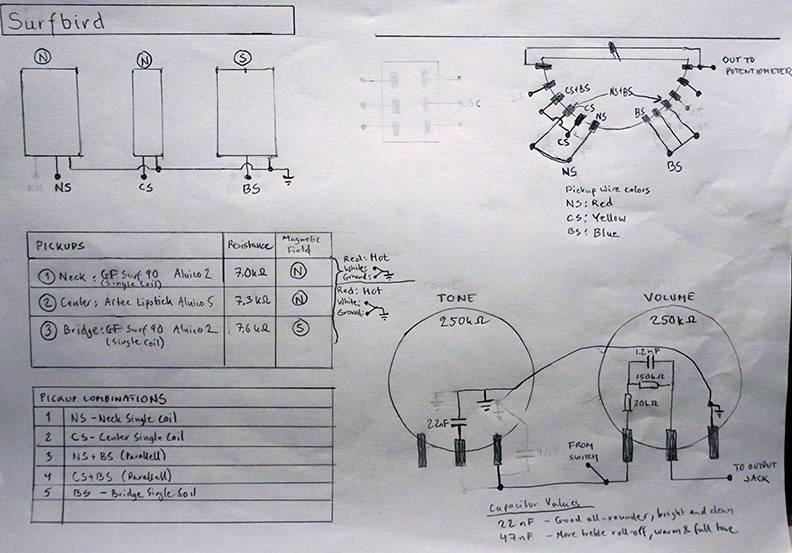 Surfbird
N
N
S
NS
CS
BS
OUT TO
POTENTIOMETER
CS+BS
NS+BS
CS
NS
BS
CS
NS
BS
Pickup wire colors
NS: Red
CS: Yellow
BS: Blue
PICKUPS
Resistance
Magnetic
Field
1 Neck: GF Surf 90 Alnico 2
(Single Coil)
7.0kΩ
N
2 Center: Artec Lipstick Alnico 5
7,3kΩ
N
3 Bridge: GF Surf 90 Alnico 2
(Single Coil)
7,6kΩ
S
Red: Hot
White:
Ground:
Red: Hot
White:
Ground:
PICKUP COMBINATIONS
1 NS - Neck Single Coil
2 CS - Center Single Coil
3 NS+BS (Parallell)
4 CS+BS (Parallell)
5 BS - Bridge Single Coil
TONE
250kΩ
22nF
VOLUME
250kΩ
1.2nF
150kΩ
20kΩ
FROM
SWITCH
TO OUTPUT
JACK
Capacitor Values
22nF - Good all-rounder, bright and clean
47nF - More treble roll-off, warm & full tone